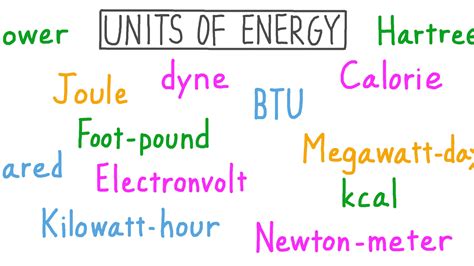 ower UNITS OF ENERGY Hartree
Joule dyne BTU Calorie
Foot-pound
ared Electronvolt Megawatt-da
kcal
Kilowatt-hour Newton-meter